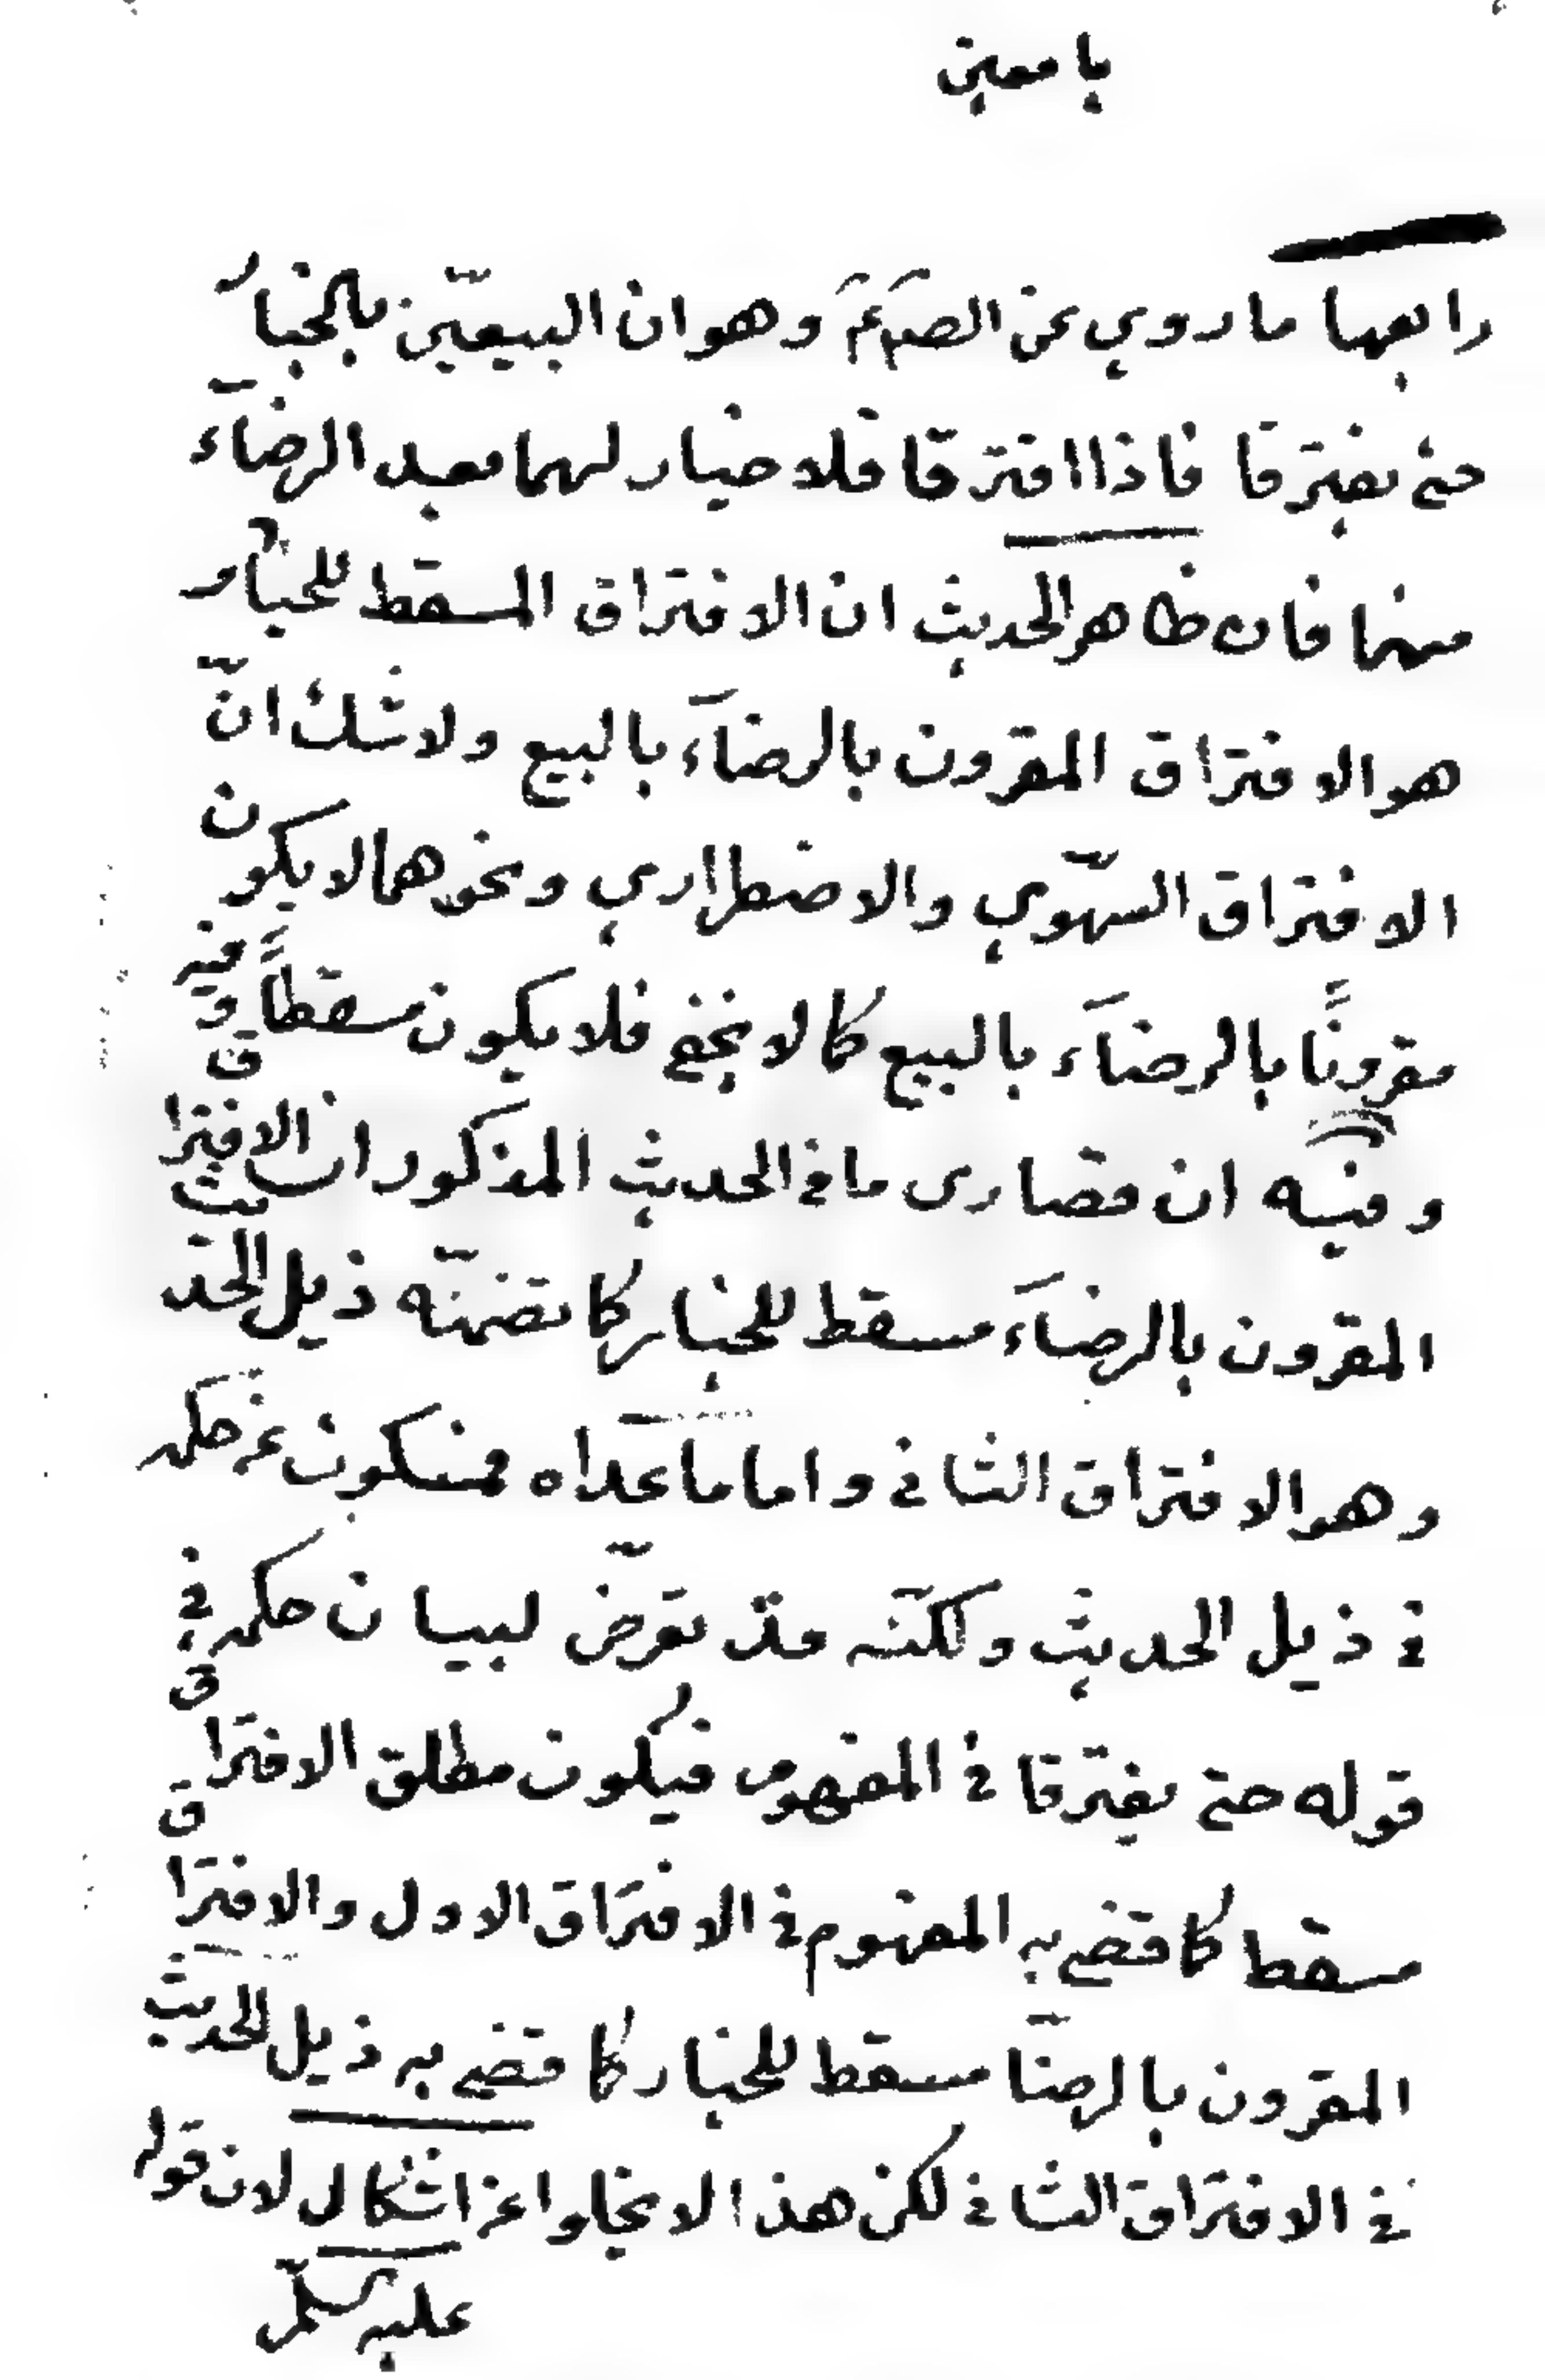 يا معين
رابعها ما روي عن الصم عم وهو ان البيعين بالخيار
حتى يفترقا فاذا افترقا فلا خيار لهما بعد الرضاء
منهما فان ظاهر الحديث ان الافتراق المسقط للخيار
هو الافتراق المقرون بالرضاء بالبيع ولا شك ان
الافتراق السهوي والاضطراري ونحوهما لا يكون
مقرونًا بالرضاء بالبيع كما لا يخفى فلا يكون مسقطاً
وفيه ان قصارى ما في الحديث المذكور ان الافتراق
المقرون بالرضاء مسقط للخيار كما تضمنه ذيل الحديث
وهو الافتراق الثاني واما ما عداه فمسكوت عن حكمه
في ذيل الحديث ولكنه قد تعرض لبيان حكمه في
قوله حتى يفترقا في المفهوم فيكون مطلق الافتراق
مسقطا كما قضى به المفهوم في الافتراق الاول والافتراق
المقرون بالرضا مسقط للخيار كما قضى به ذيل الحديث
في الافتراق الثاني لكن هذا لا يخلوا عن اشكال لان قوله
عليه السلم